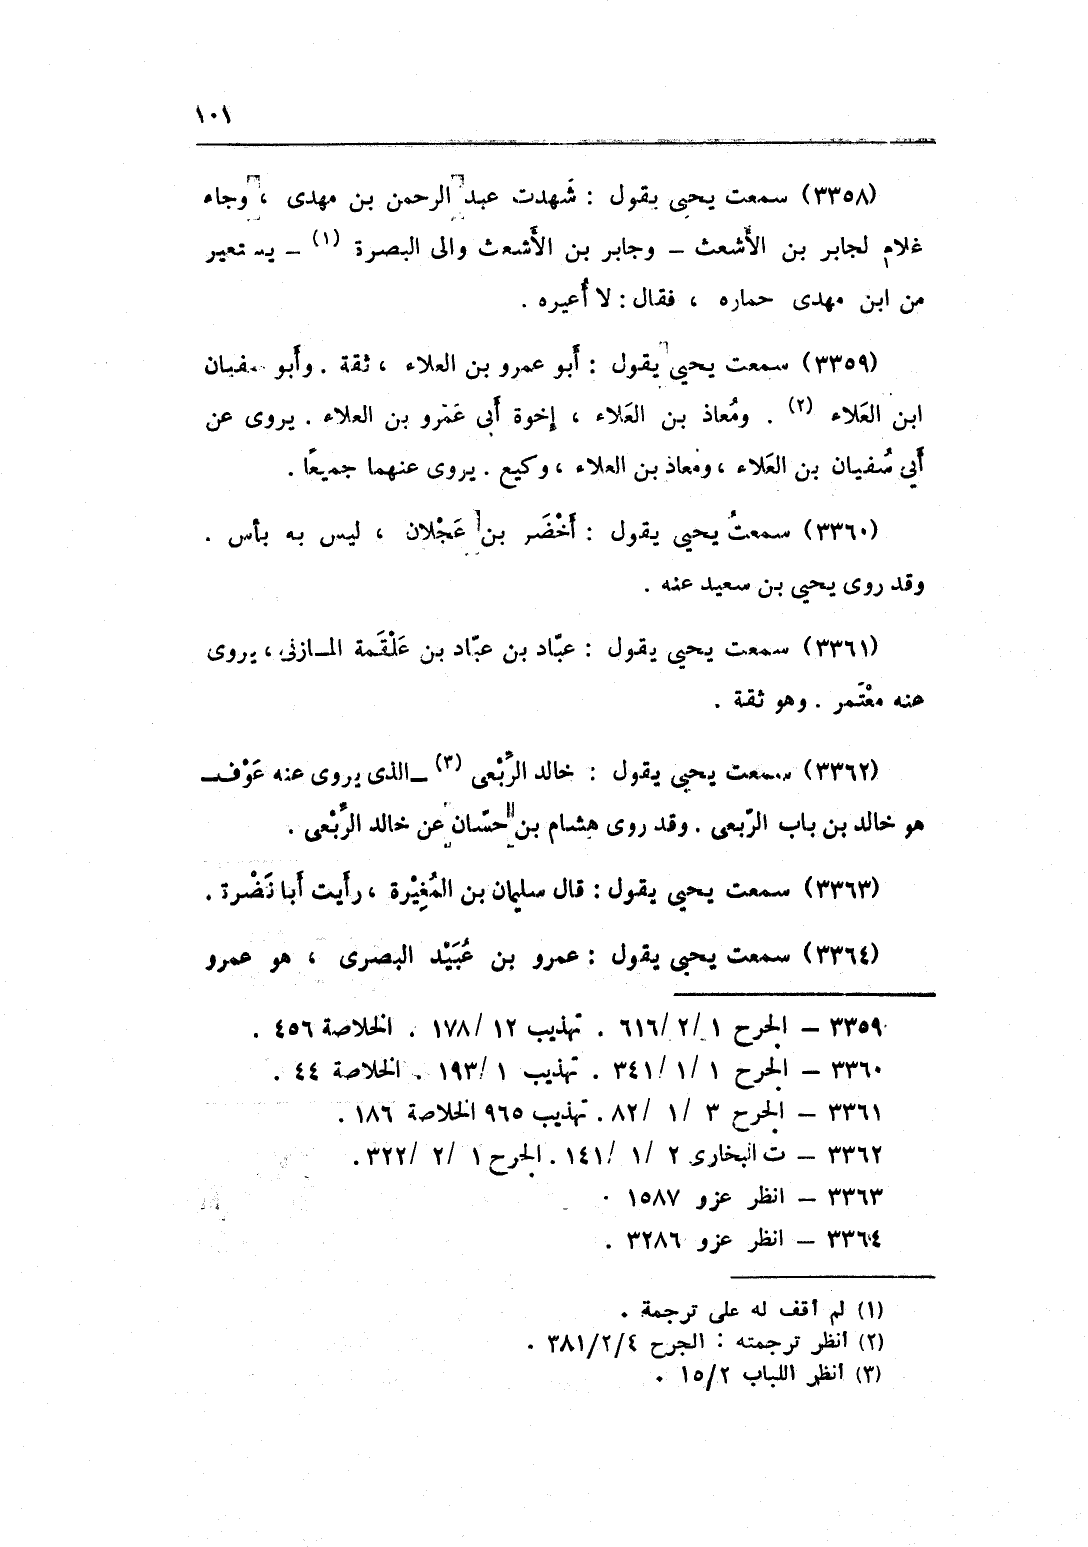 ١٠١
(٣٣٥٨) سمعت يحيى يقول : شَهدت عبد الرحمن بن مهدى ، وجاء
غلام لجابر بن الأَشعث – وجابر بن الأَشعث والى البصرة (١) – يستعير
من ابن مهدى حماره ، فقال : لا أُعيره .
(٣٣٥٩) سمعت يحيى يقول : أَبو عمرو بن العلاء ، ثقة . وأَبو سفيان
ابن العَلاء (٢) . ومُعاذ بن العَلاء ، إخوة أَبى عَمْرو بن العلاء . يروى عن
أَبي سُفيان بن العَلاء ، ومُعاذ بن العلاء ، وكيع . يروى عنهما جميعًا .
(٣٣٦٠) سمعتُ يحيى يقول : أَخْضَر بن عَجْلان ، ليس به بأس .
وقد روى يحيى بن سعيد عنه .
(٣٣٦١) سمعت يحيى يقول : عبّاد بن عبّاد بن عَلْقَمة المـازنى ، يروى
عنه معْتَمر . وهو ثقة .
(٣٣٦٢) سمعت يحيى يقول : خالد الرَّبْعى (٣) – الذى يروى عنه عَوْف –
هو خالد بن باب الرّبعى . وقد روى هشام بن حسّان عن خالد الرَّبْعى .
(٣٣٦٣) سمعت يحيى يقول : قال سليمان بن المُغِيْرة ، رأَيت أَبا نَضْرة .
(٣٣٦٤) سمعت يحيى يقول : عمرو بن عُبَيْد البصرى ، هو عمرو
٣٣٥٩ – الجرح ١ /٢ /٦١٦ . تهذيب ١٢ /١٧٨ . الخلاصة ٤٥٦ .
٣٣٦٠ – الجرح ١ /١ /٣٤١ . تهذيب ١ /١٩٣ . الخلاصة ٤٤ .
٣٣٦١ – الجرح ٣ /١ /٨٢ . تهذيب ٩٦٥ الخلاصة ١٨٦ .
٣٣٦٢ – ت البخارى ٢ /١ /١٤١ . الجرح ١ /٢ /٣٢٢ .
٣٣٦٣ – انظر عزو ١٥٨٧ .
٣٣٦٤ – انظر عزو ٣٢٨٦ .
(١) لم أقف له على ترجمة .
(٢) أنظر ترجمته : الجرح ٣٨١/٢/٤ .
(٣) أنظر اللباب ١٥/٢ .